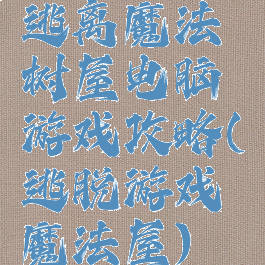 逃离魔法
树屋电脑
游戏攻略(
逃脱游戏
魔法屋)